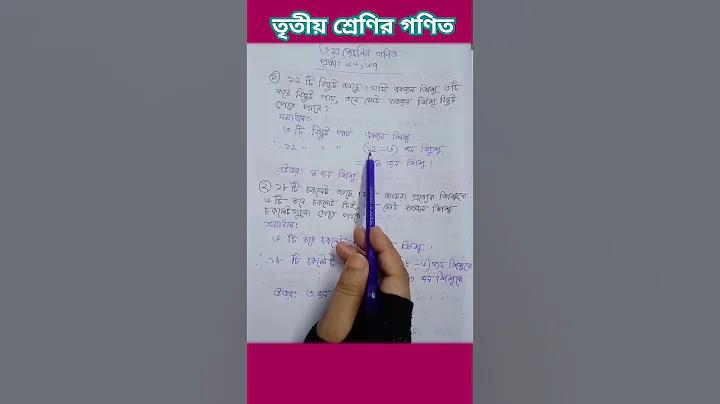 তৃতীয় শ্রেণির গণিত
৩য় শ্রেণির গণিত
পৃষ্ঠা: ৬৬,৬৭
① ১২ টি বিস্কুট আছে। যদি একজন শিশু ৩টি
করে বিস্কুট পায়, তবে মোট কতজন শিশু বিস্কুট
পেতে পারে?
সমাধান:
৩ টি বিস্কুট পায় একজন শিশু
∴ ১২ " " " (১২÷৩) জন শিশু
= ৪ জন শিশু।
উত্তর: ৪ জন শিশু
② ১৮ টি চকলেট আছে। আমরা প্রত্যেক শিশুকে
৬ টি করে চকলেট দিই, মোট কতজন শিশু
চকলেটগুলো পেতে পারে
সমাধান:
৬ টি করে চকলেট শিশু।
∴ ১৮ টি চকলেট ৮÷৬) জন শিশুকে
৩ জন শিশুকে
উত্তর: ৩ জন